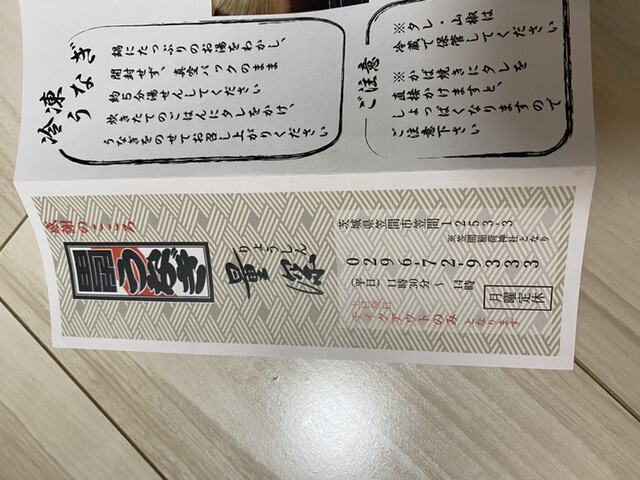 冷凍うなぎ
鍋にたっぷりのお湯をわかし、
開封せず、真空パックのまま
約５分湯せんしてください
炊きたてのごはんにタレをかけ、
うなぎをのせてお召し上がりください
ご注意
※タレ・山椒は
冷蔵で保管してください
※かば焼きにタレを
直接かけますと、
しょっぱくなりますので
ご注意下さい
感謝のこころ
うなぎ
りょうしん
量深
茨城県笠間市笠間１２５３-３
※笠間稲荷神社となり
０２９６-７２-９３３３
平日 11時30分～14時
土日祭日
テイクアウトのみとなります
月曜定休